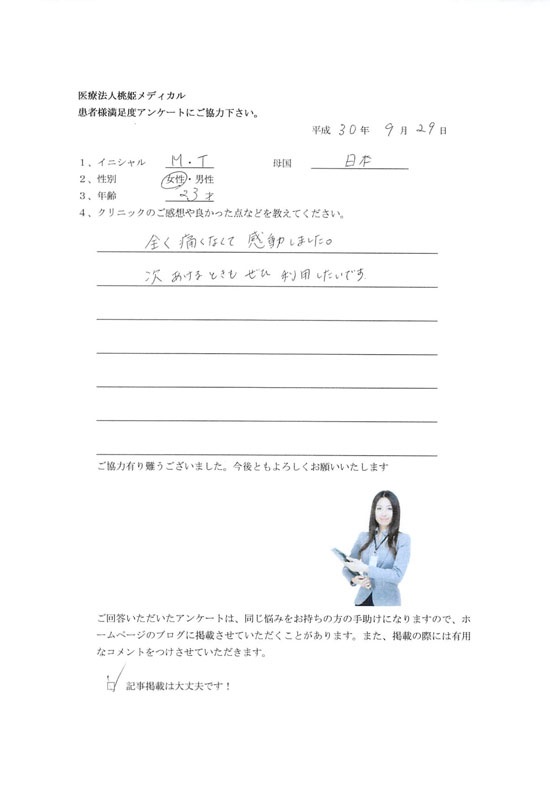 医療法人桃姫メディカル
患者様満足度アンケートにご協力下さい。
平成 30年 9月 29日
1、イニシャル M・T 母国 日本
2、性別 女性・男性
3、年齢 23才
4、クリニックのご感想や良かった点などを教えてください。
全く痛くなくて感動しました。
次あけるときもぜひ利用したいです。
ご協力有り難うございました。今後ともよろしくお願いいたします
ご回答いただいたアンケートは、同じ悩みをお持ちの方の手助けになりますので、ホ
ームページのブログに掲載させていただくことがあります。また、掲載の際には有用
なコメントをつけさせていただきます。
記事掲載は大丈夫です！